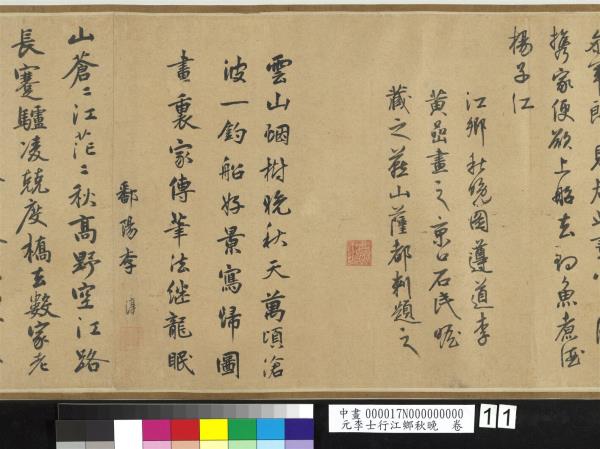 携家便欲上船去釣魚煮酒
楊子江
江鄉秋晚圖遵道李
黃嵒畫之京口石民瞻
藏之燕山薩都剌題之
雲山烟樹晚秋天萬頃滄
波一釣船好景寫歸圖
畫裏家傳筆法繼龍眠
鄱陽李淳
山蒼〻江茫〻秋高野空江路
長蹇驢凌兢度橋去數家老
中畫 000017N000000000
元李士行江鄉秋晚 卷
11